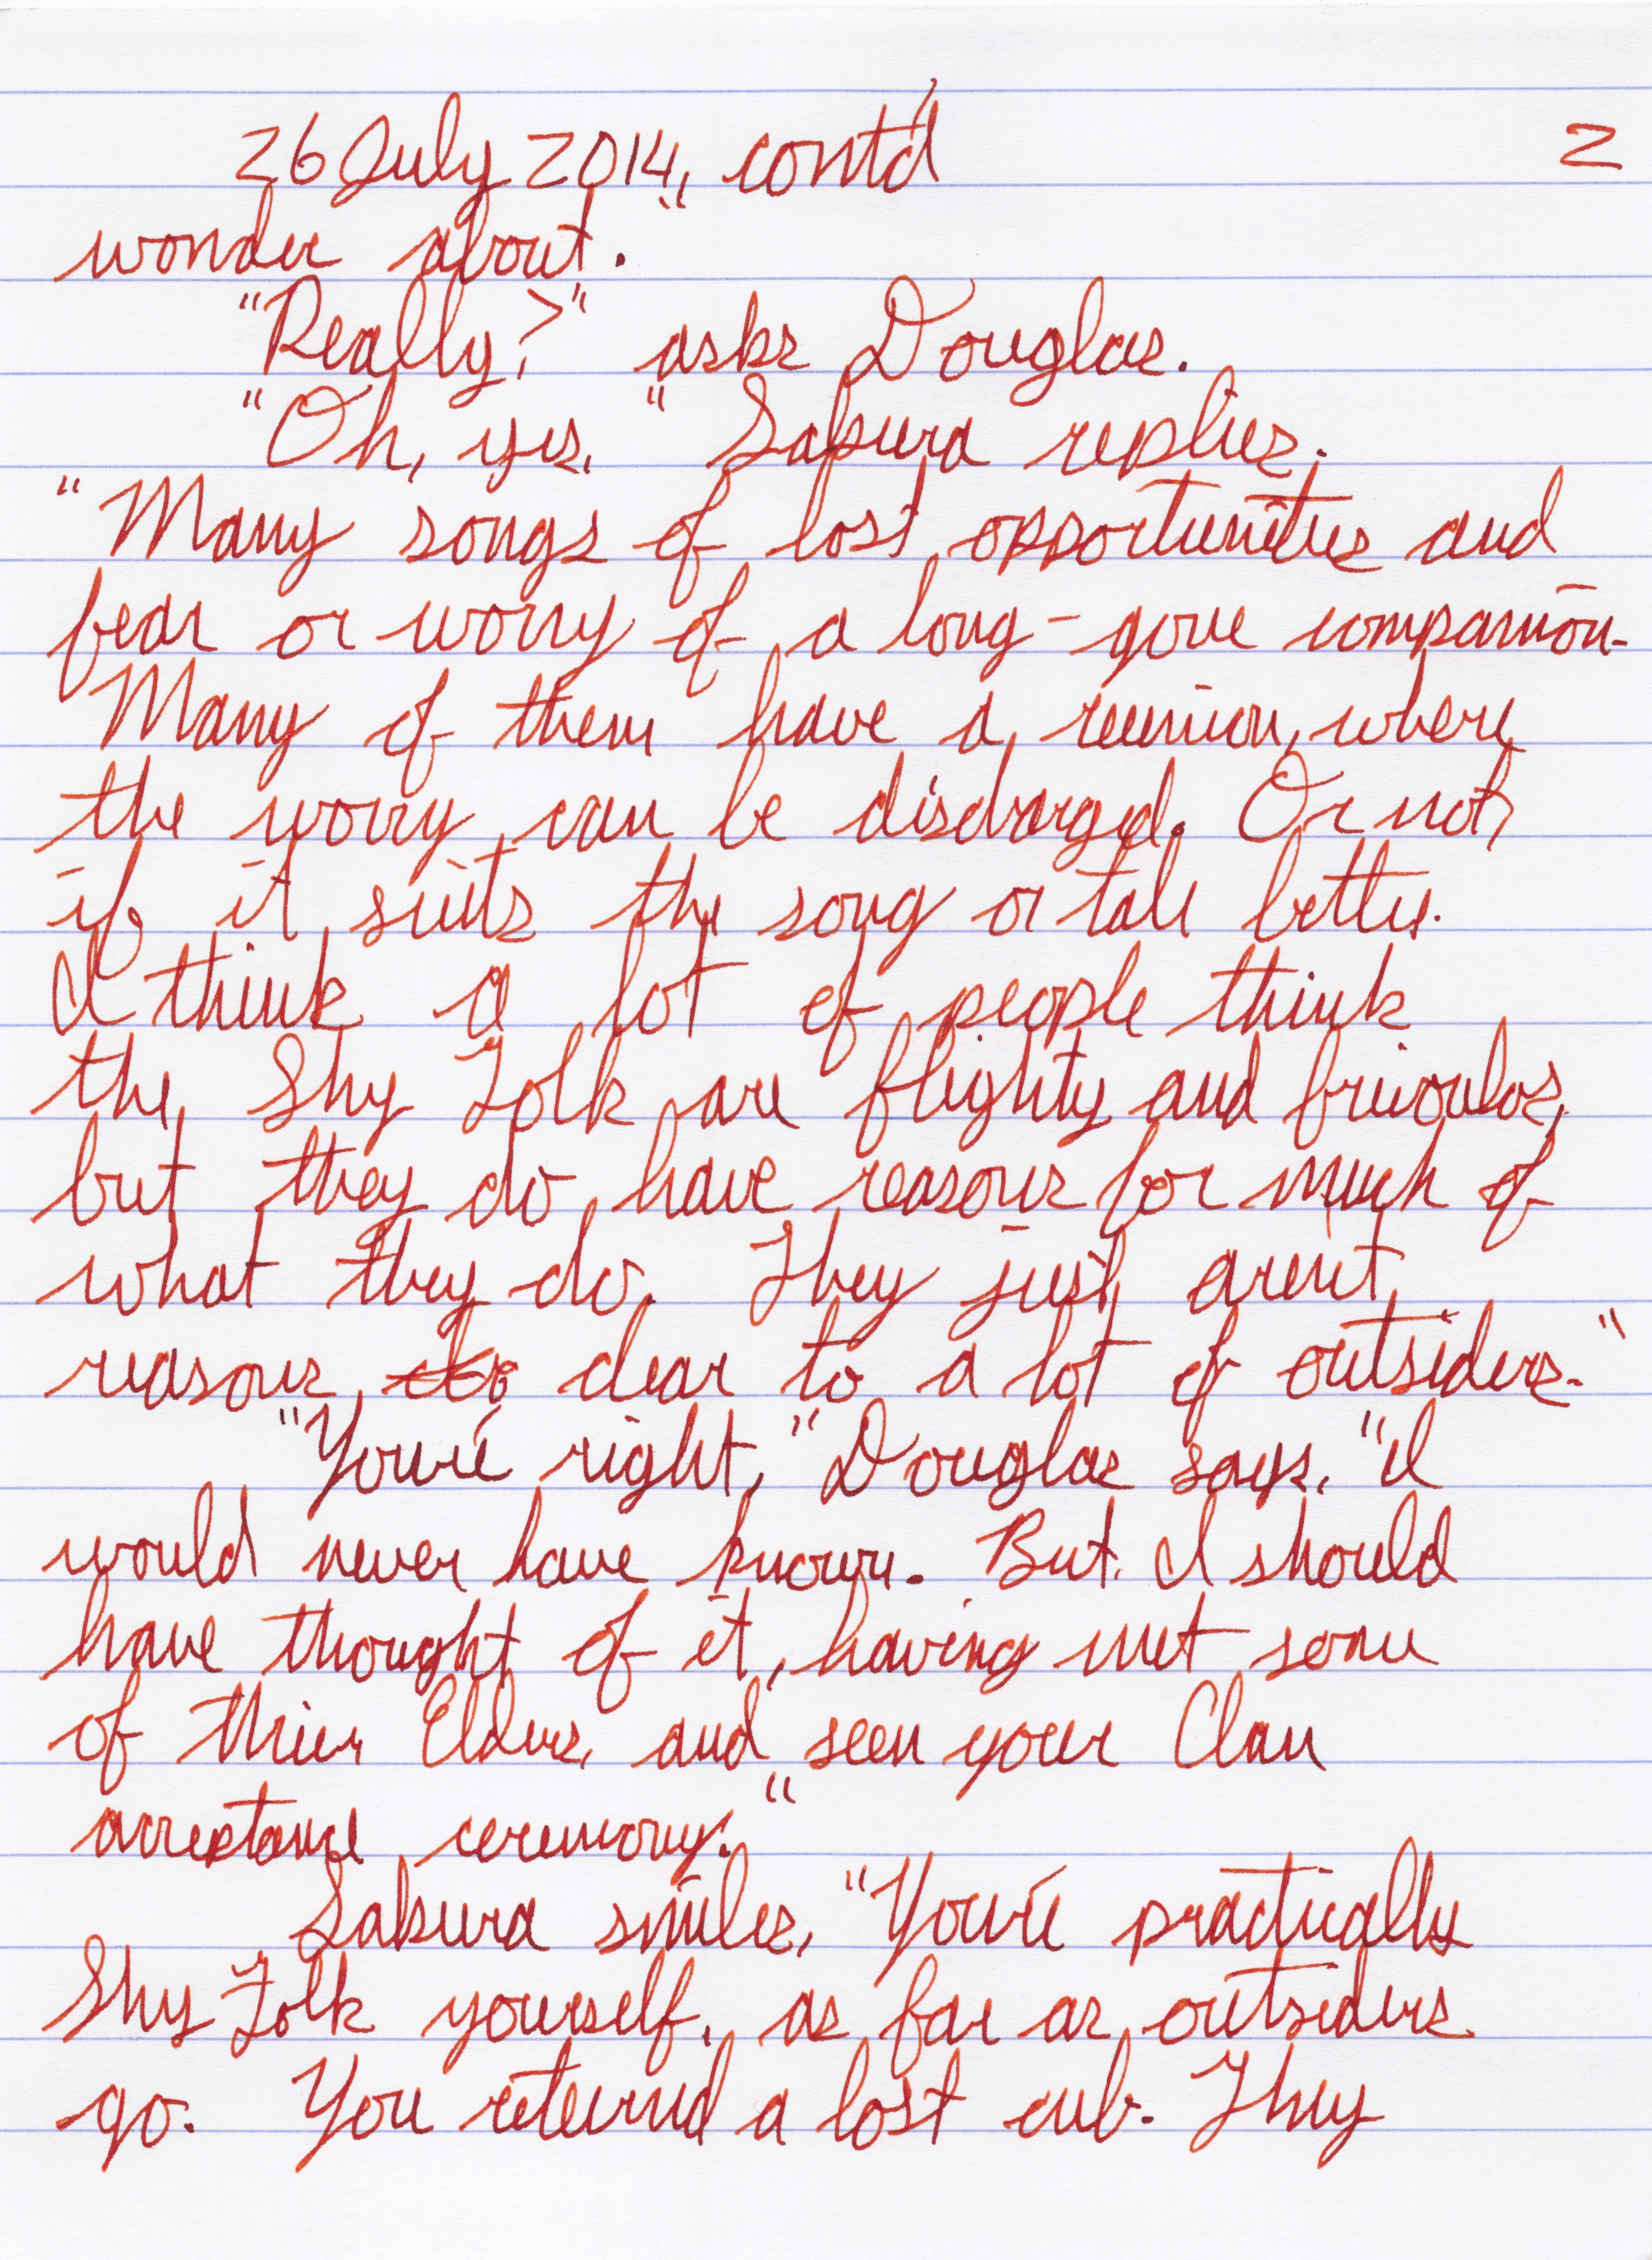 26 July 2014, cont'd 2
wonder about."
"Really?" asks Douglas.
"Oh, yes," Sakura replies.
"Many songs of lost opportunities and
fear or worry of a long-gone companion.
Many of them have a reunion, where
the worry can be discharged. Or not,
if it suits the song or tale better.
I think a lot of people think
the Shy Folk are flighty and frivolos,
but they do have reasons for much of
what they do. They just aren't
reasons clear to a lot of outsiders."
"You're right," Douglas says, "I
would never have known. But I should
have thought of it, having met some
of thier Elders, and seen your Clan
acceptance ceremony."
Sakura smiles, "You're practically
Shy Folk yourself, as far as outsiders
go. You returnd a lost cub. They